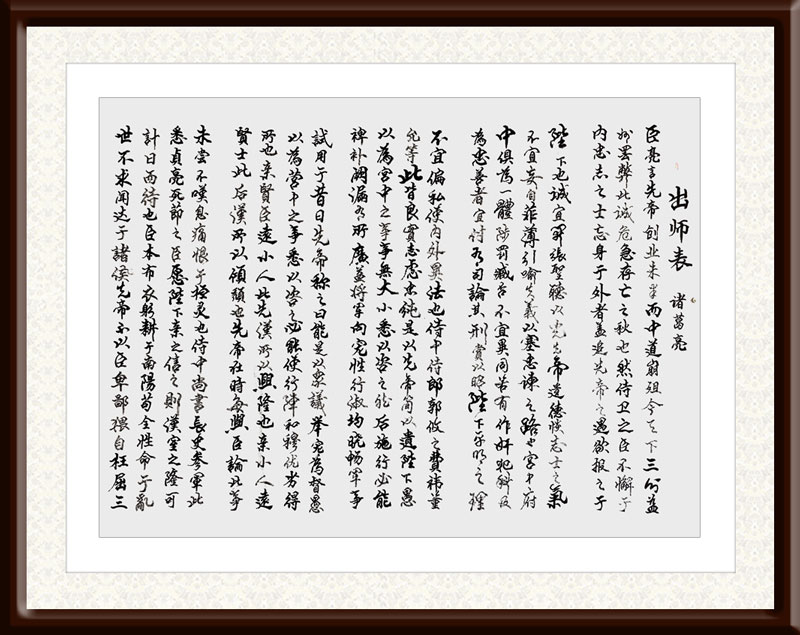 出师表
诸葛亮
臣亮言先帝创业未半而中道崩殂今天下三分益
州罢弊此诚危急存亡之秋也然侍卫之臣不懈于
内忠志之士忘身于外者盖追先帝之遇欲报之于
陛下也诚宜開張聖聽以光先帝遗德恢志士之氣
不宜妄自菲薄引喻失義以塞忠谏之路也宫中府
中俱為一體陟罚臧否不宜異同若有作奸犯科及
為忠善者宜付有司論其刑賞以昭陛下平明之理
不宜偏私使内外異法也侍中侍郎郭攸之費祎董
允等此皆良實志慮忠純是以先帝简以遺陛下愚
以為宫中之事事無大小悉以咨之然后施行必能
裨补阙漏有所廣益将軍向宠性行淑均晓畅軍事
試用于昔日先帝称之曰能是以衆議举宠為督愚
以為营中之事悉以咨之必能使行陣和穆优劣得
所也亲賢臣遠小人此先漢所以興隆也亲小人遠
賢士此后漢所以傾頹也先帝在時每與臣論此事
未尝不嘆息痛恨于桓灵也侍中尚書長史参軍此
悉貞亮死節之臣愿陛下亲之信之則漢室之隆可
計日而待也臣本布衣躬耕于南陽苟全性命于亂
世不求闻达于諸侯先帝不以臣卑鄙猥自枉屈三